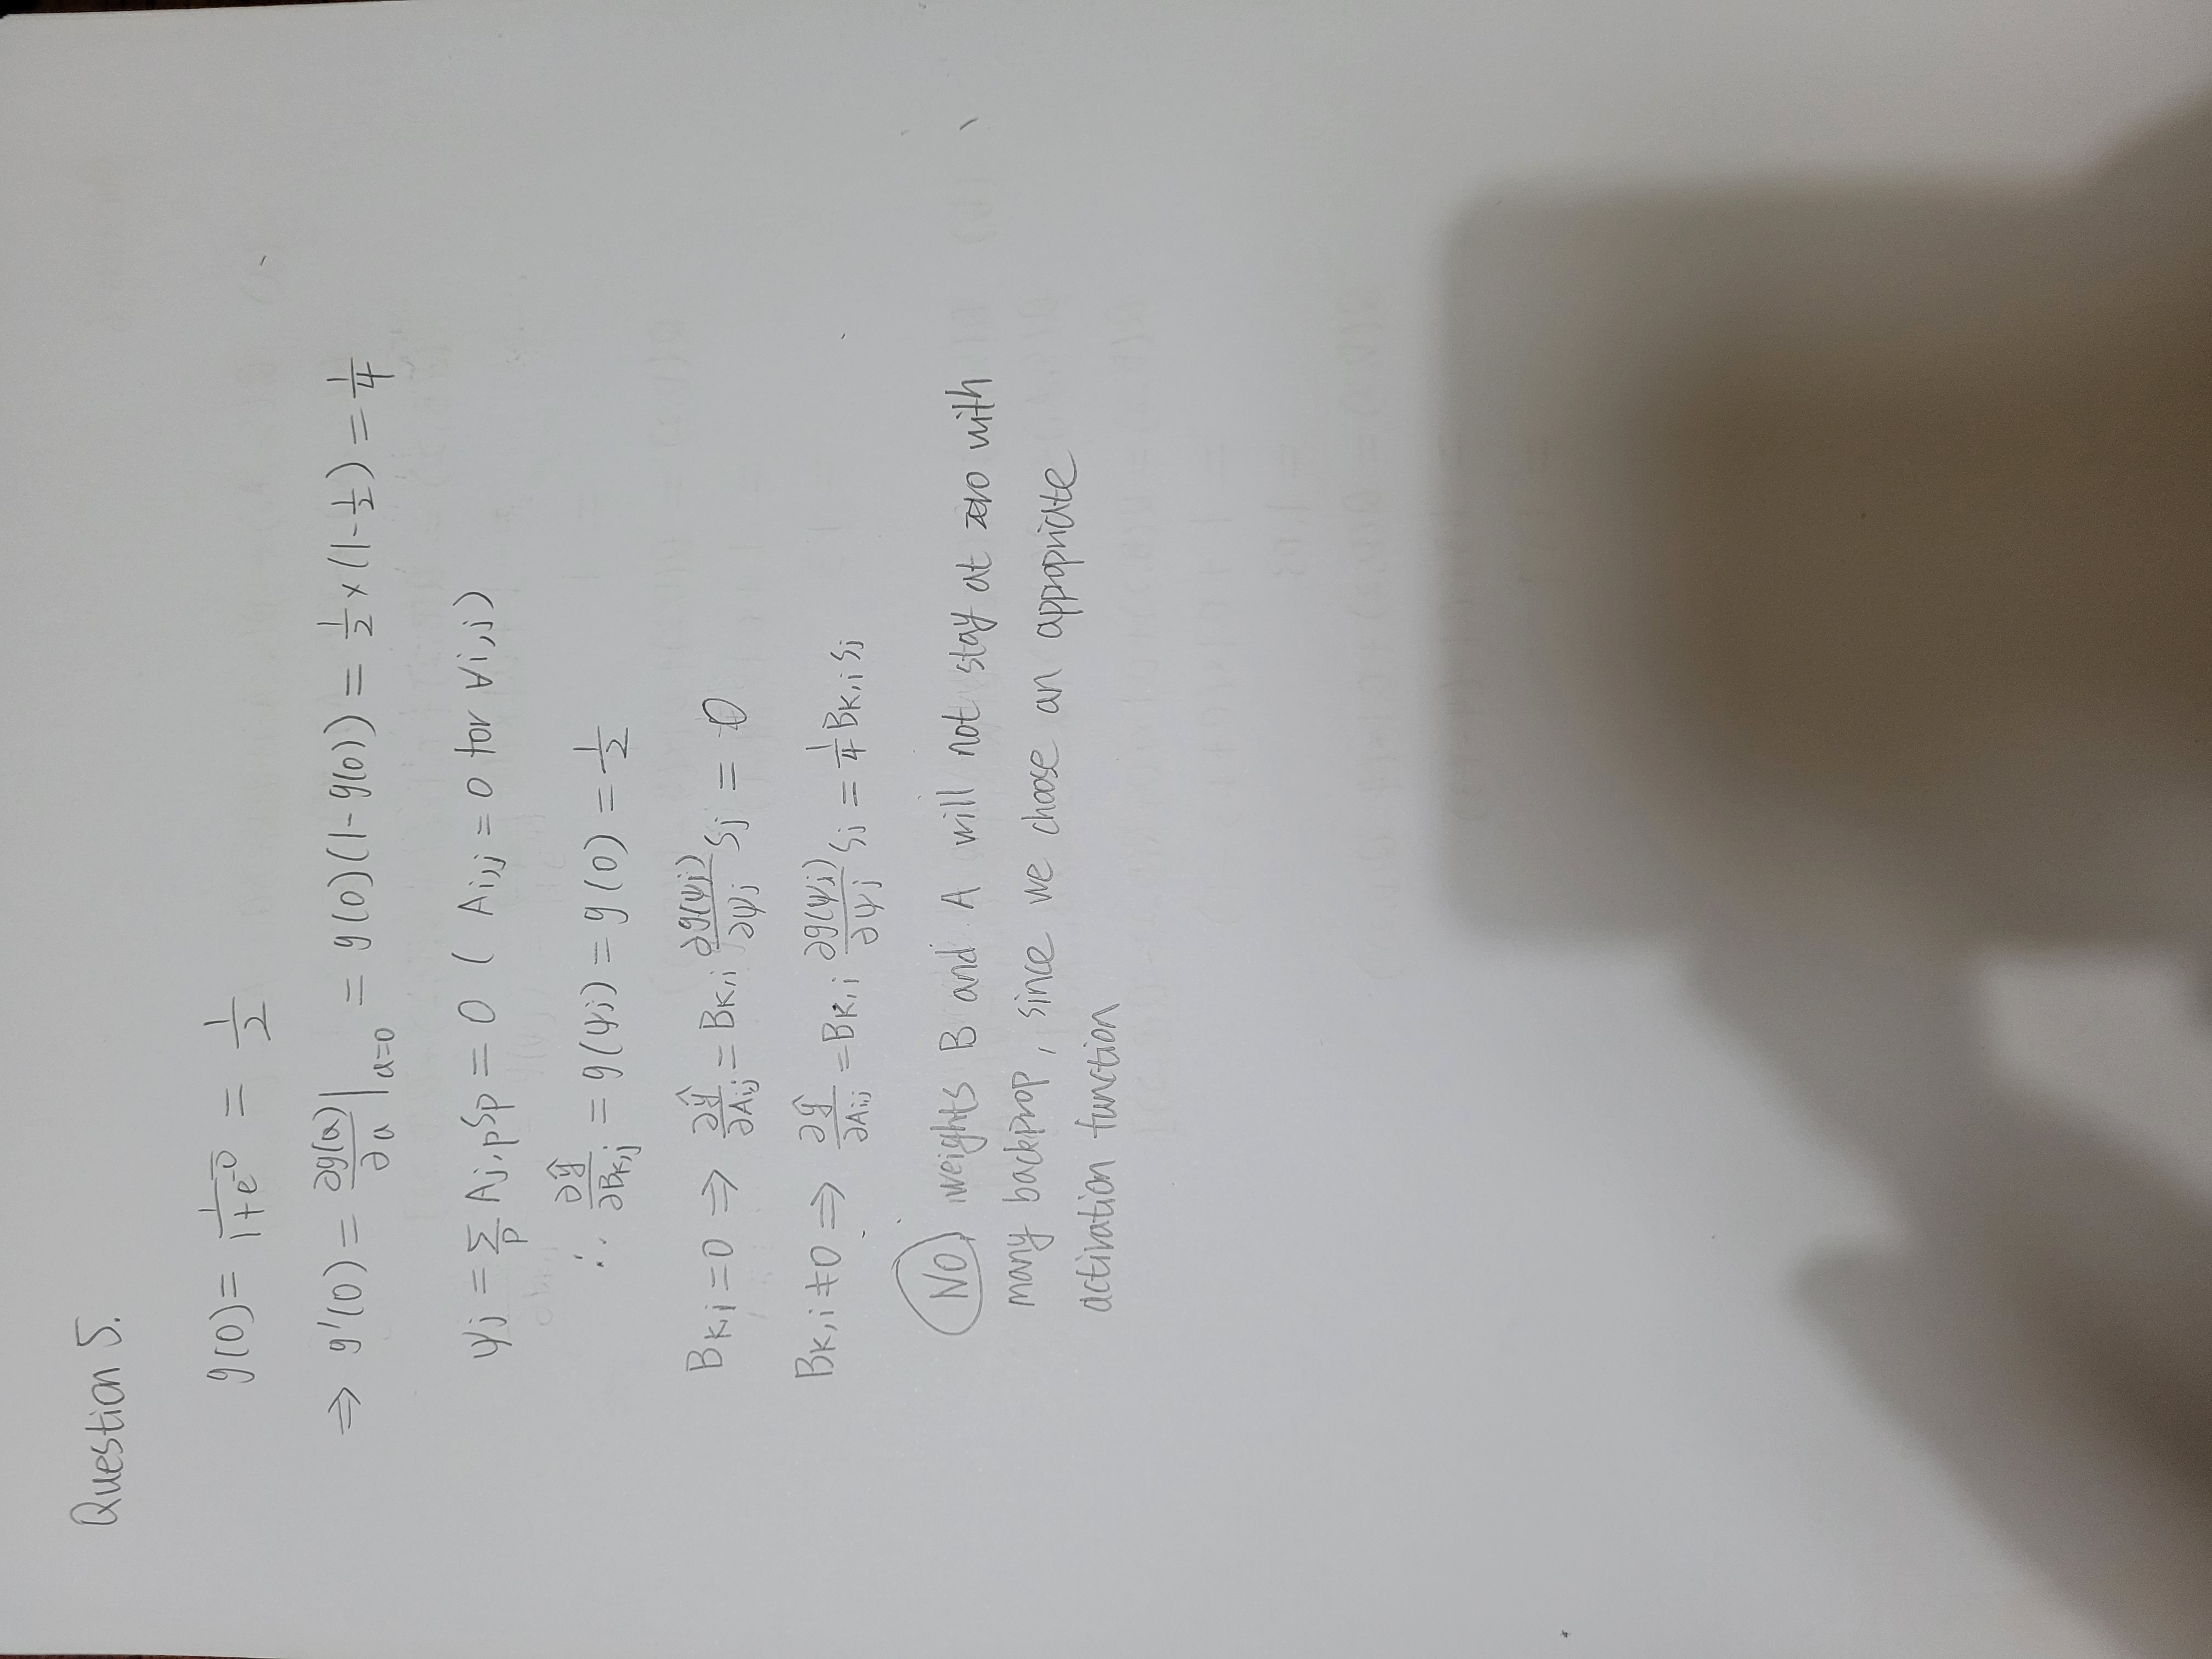 Question 5.
g(0) = 1/(1+e^-0) = 1/2
⇒ g'(0) = ∂g(a)/∂a |a=0 = g(0)(1-g(0)) = 1/2 × (1-1/2) = 1/4
ψj = Σp Aj,pSp = 0 ( Ai,j = 0 for ∀i,j )
∴ ∂ŷ/∂Bk,j = g(ψj) = g(0) = 1/2
Bk,i = 0 ⇒ ∂ŷ/∂Aij = Bk,i ∂g(ψj)/∂ψj Sj = 0
Bk,i ≠ 0 ⇒ ∂ŷ/∂Aij = Bk,i ∂g(ψi)/∂ψj Sj = 1/4 Bk,i Sj
NO, weights B and A will not stay at zero with
many backprop, since we choose an appropriate
activation function